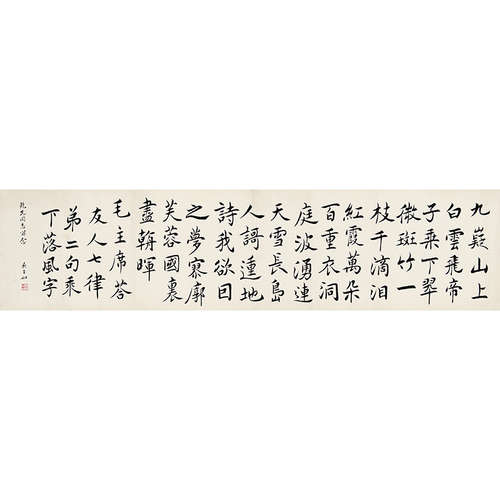 九嶷山上
白雲飛帝
子乘下翠
微斑竹一
枝千滴泪
紅霞萬朵
百重衣洞
庭波湧連
天雪長島
人謌地
詩我欲囙
之夢寥廓
芙蓉國裏
盡暉
毛主席答
友人七律
弟二句乘
下落風字
同志